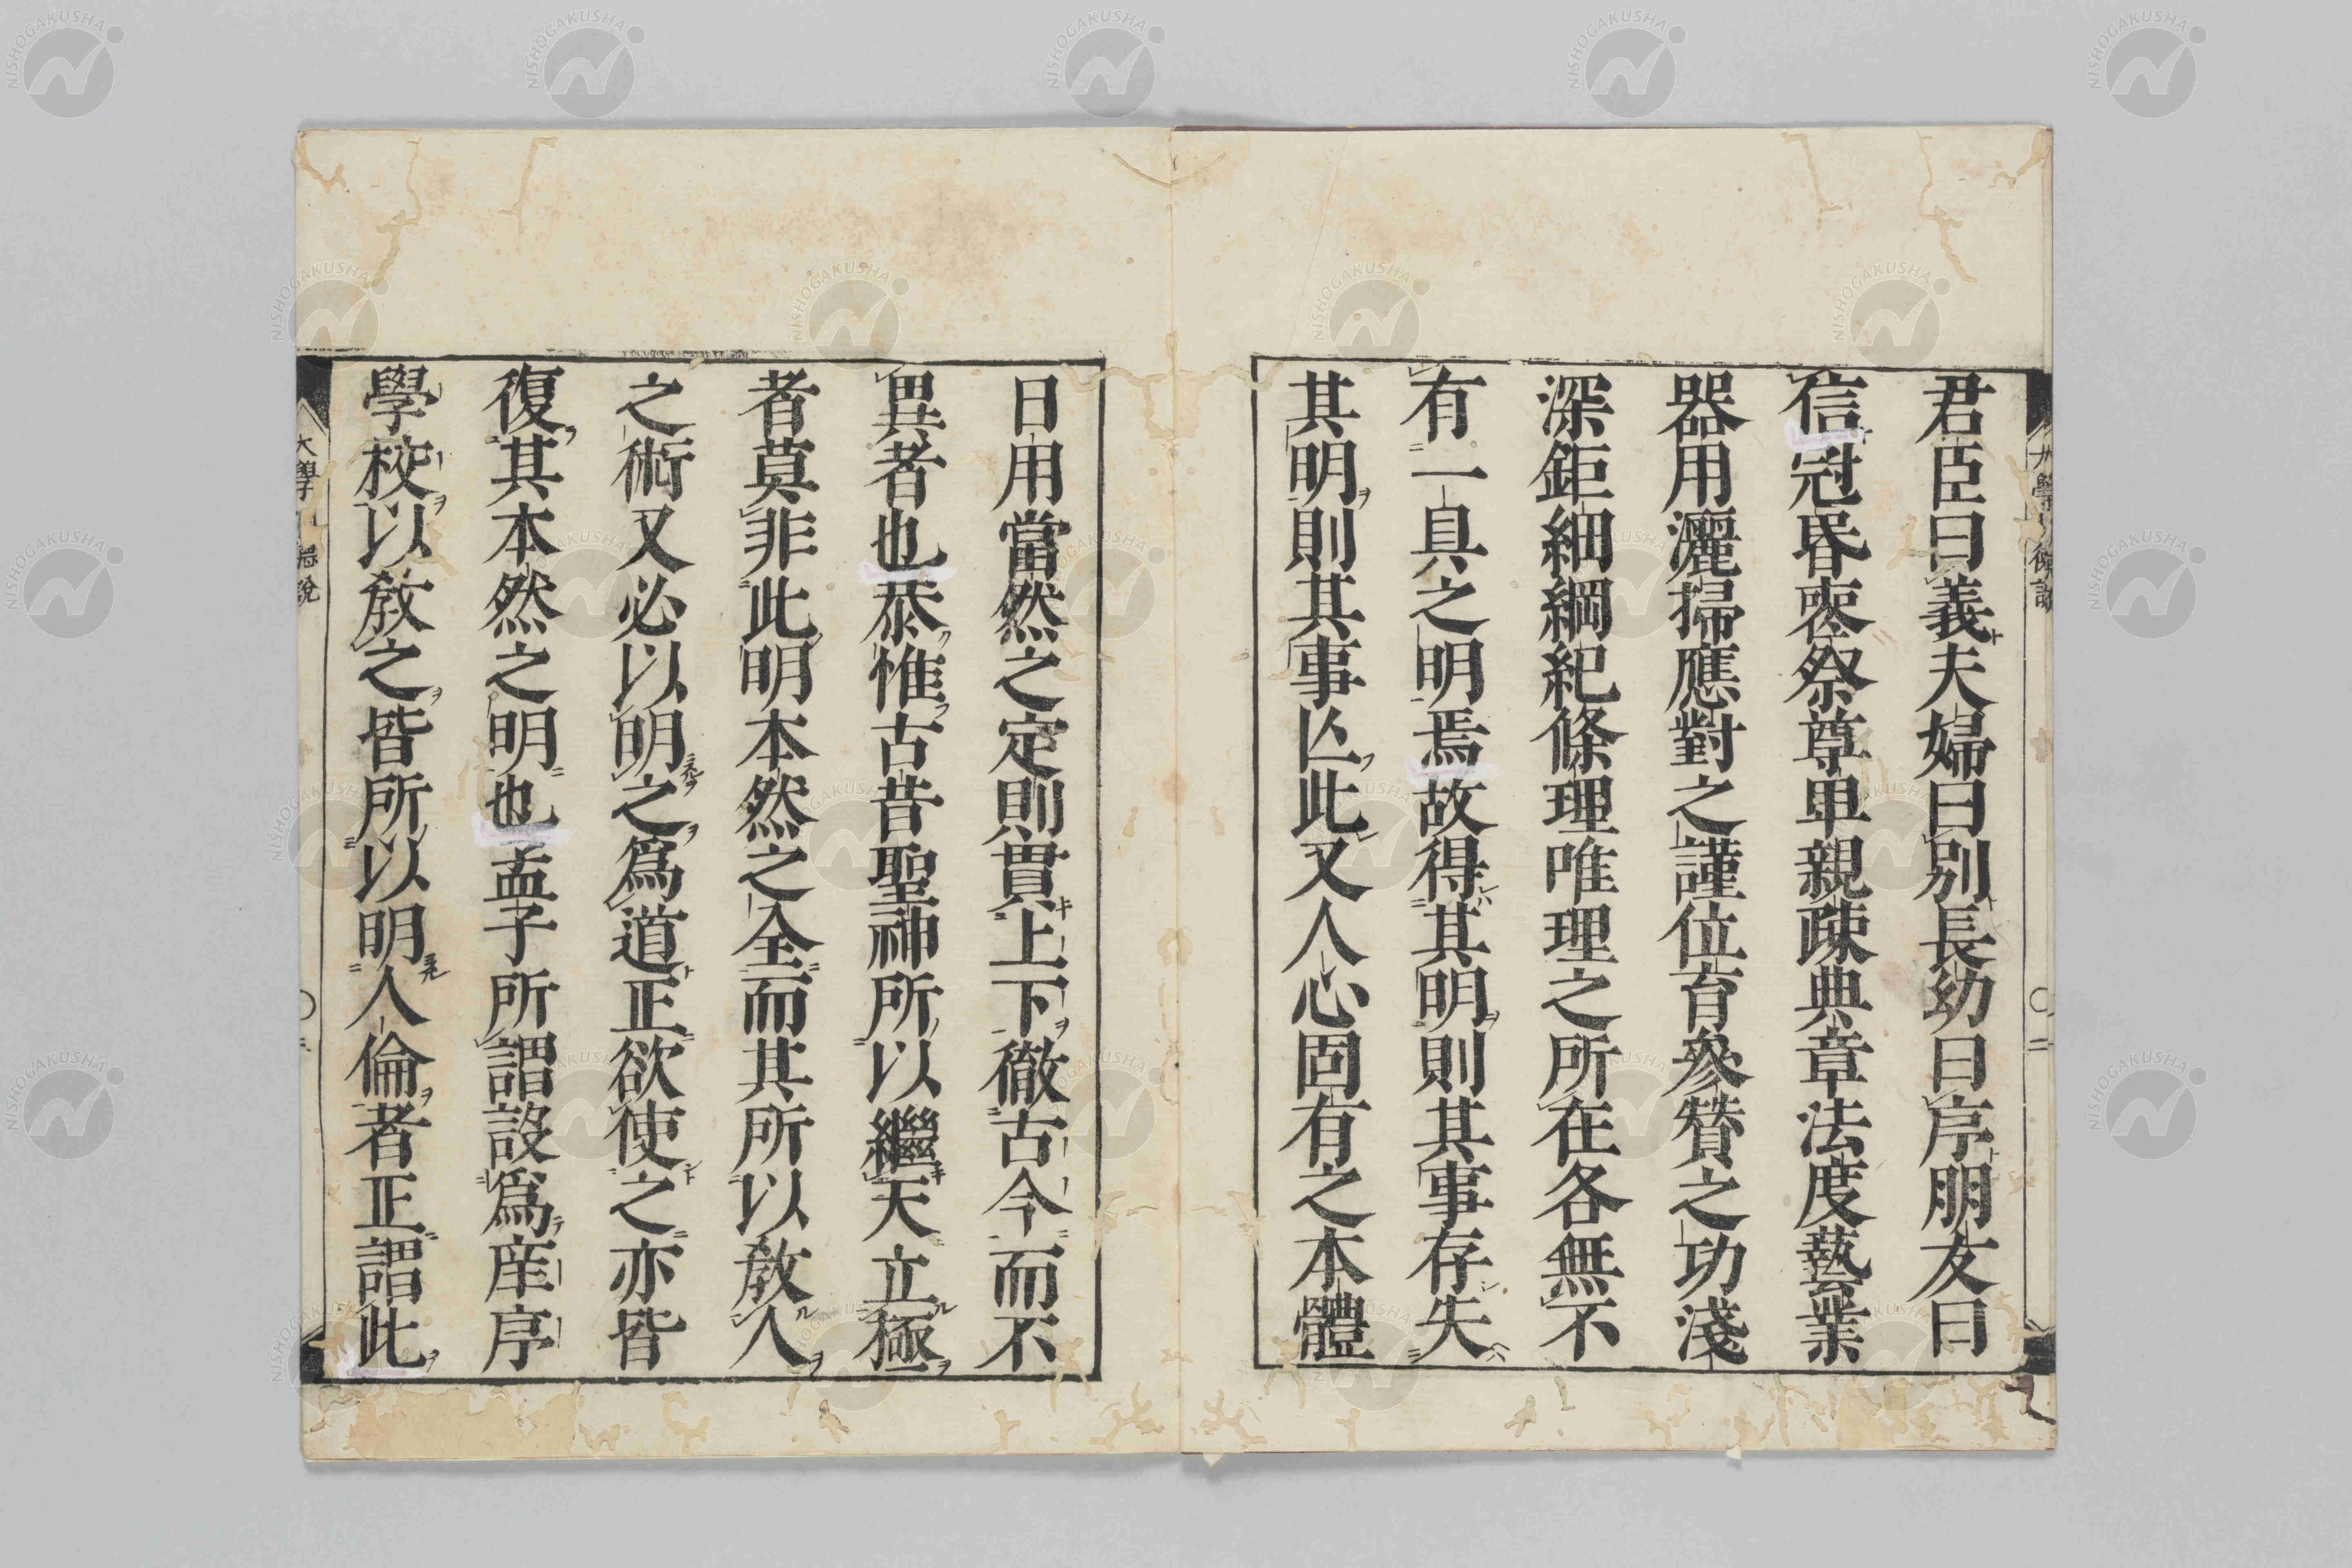 君臣曰義夫婦曰別長幼曰序朋友曰
信冠昏喪祭尊卑親疎典章法度藝業
器用灑掃應對之謹位育參贊之功淺
深鉅細綱紀條理唯理之所在各無不
有一具之明焉故得其明則其事存失
其明則其事亾此又人心固有之本體
日用當然之定則貫上下徹古今而不
異者也恭惟古昔聖神所以繼天立極
者莫非此明本然之全而其所以敎人
之術又必以明之爲道正欲使之亦皆
復其本然之明也孟子所謂設爲庠序
學校以敎之皆所以明人倫者正謂此
大學
說
NISHOGAKUSHA